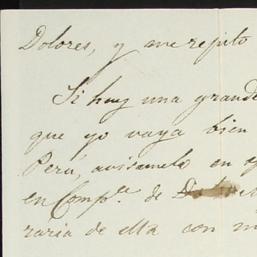 Dolores, y me repito
Si hay una grande
que yo vaya bien
Perú, avisamelo en
en Comp.ª de
raria de ella con